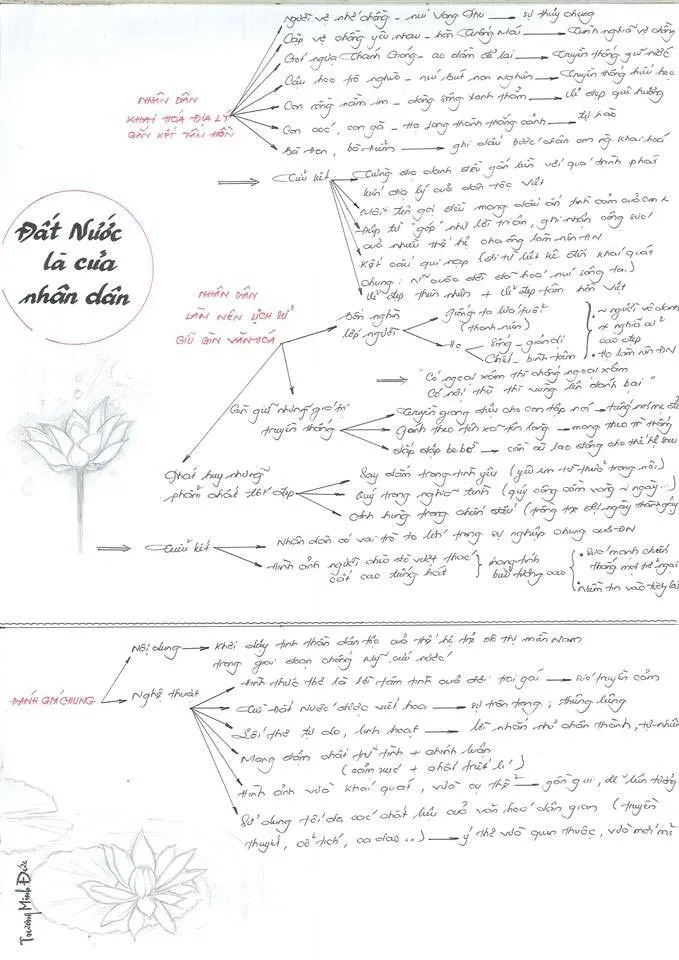 Người vợ nhớ chồng - núi Vọng Phu → sự thủy chung
Cặp vợ chồng yêu nhau - hòn Trống Mái → tình nghĩa vợ chồng
Gót ngựa Thánh Gióng - ao đầm để lại → truyền thống giữ nước
Cậu học trò nghèo - núi bút non nghiên → truyền thống hiếu học
Con rồng nằm im - dòng sông xanh thẳm → vẻ đẹp quê hương
Con cóc, con gà - Hạ Long thành thắng cảnh → tự hào
Bà Đen, bà Điểm → ghi dấu bước chân ông khai hoá
NHÂN DÂN
KHAI HOÁ ĐỊA LÝ
GẮN KẾT TÂM HỒN
⇒ Tiểu kết
Từng địa danh đều gắn liền với quá trình phát
triển địa lý của dân tộc Việt
Mỗi tên gọi đều mang dấu ấn tình cảm của
Điệp từ "góp" như lời tri ân, ghi nhận công sức
của nhiều thế hệ cha ông làm nên ĐN
Kết cấu qui nạp (đi từ liệt kê đến khái quát
chung: đã hoá núi sông ta)
Vẻ đẹp thiên nhiên + vẻ đẹp tâm hồn Việt
Đất Nước
là của
nhân dân
NHÂN DÂN
LÀM NÊN LỊCH SỬ
GIỮ GÌN VĂN HOÁ
Bốn nghìn
lớp người
giống ta lứa tuổi
(thanh niên)
Họ
Sống - giản dị
Chết - bình tâm
người vô danh
+ nghĩa cử
cao đẹp
• Họ làm nên ĐN
⇒ "Có ngoại xâm thì chống ngoại xâm
Có nội thù thì vùng lên đánh bại"
Gìn giữ những giá trị
truyền thống
Truyền giọng điệu cho con tập nói → tiếng nói mẹ đẻ
Gánh theo tên xã tên làng → mang theo
Đắp đập be bờ → cần cù lao động cho thế hệ sau
Phát huy những
phẩm chất tốt đẹp
Say đắm trong tình yêu (yêu em từ thuở trong nôi)
Quý trọng nghĩa tình (quý công cầm vàng ngày..)
Anh hùng trong chiến đấu (trồng tre đợi ngày thành gậy)
⇒ Tiểu kết
Nhân dân có vai trò to lớn trong sự nghiệp chung của ĐN
Hình ảnh người chèo đò vượt thác
cất cao tiếng hát
mang tính
biểu tượng cao
• Sức mạnh chiến
thắng mọi trở ngại
• Niềm tin vào tương lai
ĐÁNH GIÁ CHUNG
Nội dung → Khơi dậy tinh thần dân tộc của thế hệ trẻ đô thị miền Nam
trong giai đoạn chống Mỹ cứu nước
Nghệ thuật
Hình thức thơ là lời tâm tình của đôi trai gái → sức truyền cảm
Chữ Đất Nước được viết hoa → sự trân trọng, thiêng liêng
Lối thơ tự do, linh hoạt → lời nhắn nhủ chân thành, tự nhiên
Mang đậm chất trữ tình + chính luận
(cảm xúc + chất triết lí)
Hình ảnh vừa khái quát, vừa cụ thể → gần gũi, dễ liên tưởng
Sử dụng tối đa các chất liệu của văn hoá dân gian (truyền
thuyết, cổ tích, ca dao..) → ý thơ vừa quen thuộc, vừa mới mẻ
Trương Minh Đức